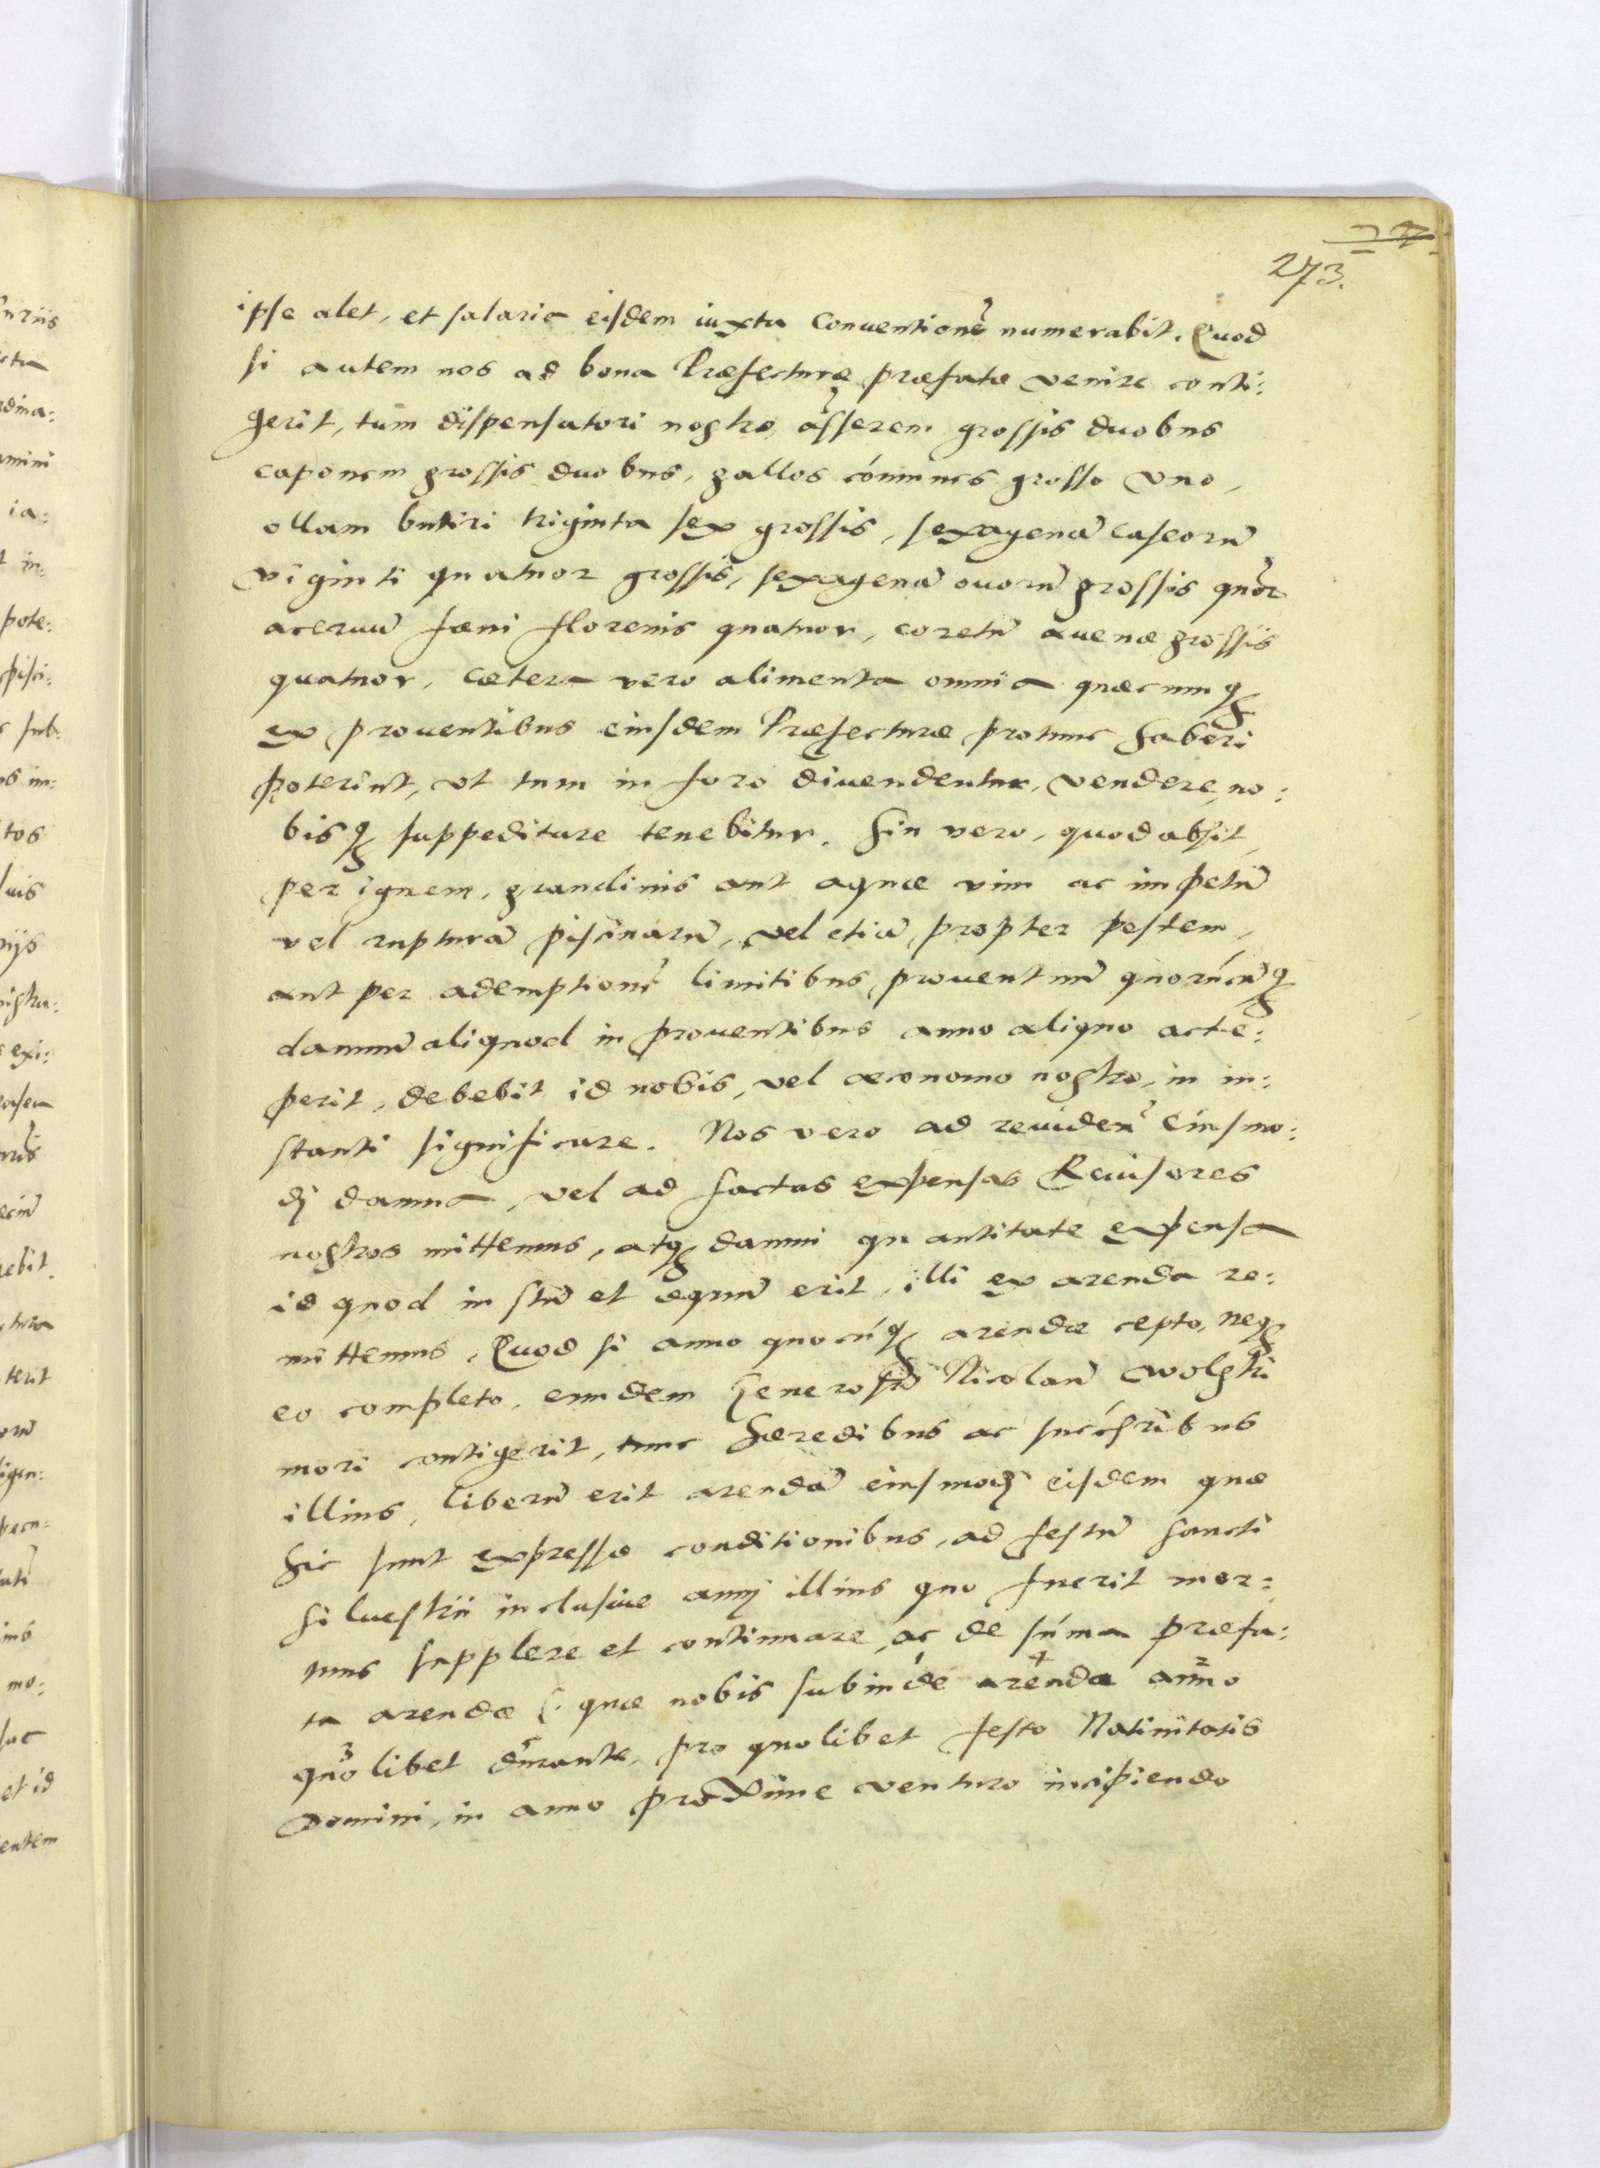 273.
ipse alet, et salaria eisdem iuxta Conventionẽ numerabit. Quod
si autem nos ad bona Præfecturæ præfatæ venire conti:
gerit, tum dispensatori nostro, asserem grossis duobus
caponem grossis duobus, gallos cómunes grosso vno,
ollam butiri triginta sex grossis, sexagenã caseorũ
viginti quatuor grossis, sexagenã ouorũ grossis quõr
aceruũ fœni florenis quatuor, coretũ auenæ grossis
quatuor, cætera vero alimenta omnia quæcumq
ex prouentibus eiusdem Præfecturæ protunc haberi
poterint, vt tum in foro diuendentur, vendere, no:
bisq suppeditare tenebitur. Sin vero, quod absit,
per ignem, grandinis aut aquæ vim ac impetũ
vel rupturã piscinarũ, vel etiã propter pestem,
aut per ademptionẽ limitibus, prouentuũ quorúcũq
damnũ aliquod in prouentibus anno aliquo acce:
perit, debebit id nobis, vel œconomo nostro, in in:
stanti significare. Nos vero ad reuidenẽ eiusmo:
dj damna, vel ad factas expensas Reuisores
nostros mittemus, atq damni quantitate expensa
id quod iustũ et æquũ erit, illi ex arenda re:
mittemus. Quod si anno quocúq arendæ cepto, neq
eo completo, eundem Generosũ Nicolaũ Wolski
mori contigerit, tunc hæredibus ac succéssribus
illius, liberũ erit arendã eiusmodj eisdem quæ
hic sunt expressæ conditionibus, ad festũ Sancti
Siluestrii inclusiue annj illius quo fuerit mor:
tuus supplere et continuare, ac de súmma præfa:
ta arendæ (: quæ nobis subinde arendæ anno
quolibet durante, pro quolibet festo Natiuitatis
Domini, in anno proxime venturo incipiendo